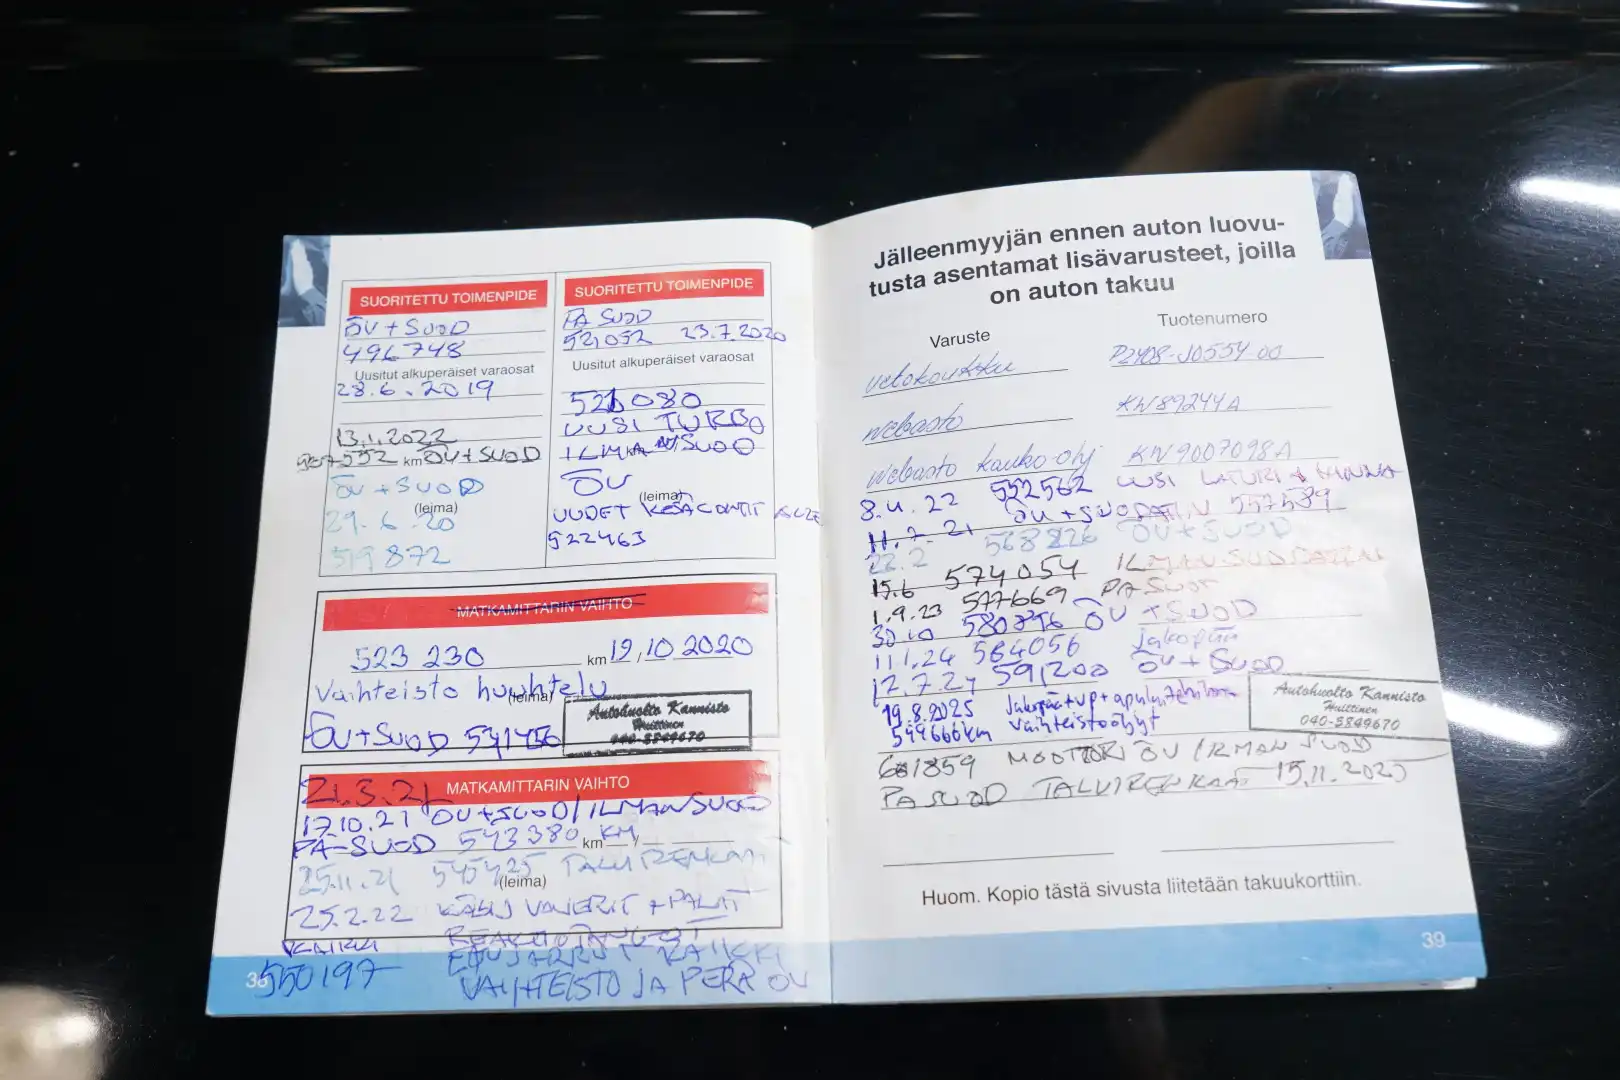 SUORITETTU TOIMENPIDE
ÖV + SUOD
496748
Uusitut alkuperäiset varaosat
28.6.2019
13.1.2022
km ÖV+SUOD
ÖV + SUOD
(leima)
29.6.20
519872
SUORITETTU TOIMENPIDE
PA SUOD
521052 23.7.2020
Uusitut alkuperäiset varaosat
521080
UUSI TURBO
ILMANSUOD
ÖV
(leima)
UUDET
522463
MATKAMITTARIN VAIHTO
523 230 km 19/10 2020
Vaihteisto huuhtelu
(leima)
ÖV+SUOD
Autohuolto Kannisto
Huittinen
040-5849670
MATKAMITTARIN VAIHTO
21.3.21
17.10.21 ÖV+SUOD/ILMANSUOD
PA-SUOD 543380 km KM
25.11.21 545425 TALVIRENKAAT
(leima)
25.2.22 KÄSIJ VAIJERIT + PALAT
550197
VAIHTEISTO JA PERÄ ÖV
38
Jälleenmyyjän ennen auton luovu-
tusta asentamat lisävarusteet, joilla
on auton takuu
Varuste Tuotenumero
vetokoukku P2408-J0554-00
webasto KN89244A
webasto kauko-ohj KN9007098A
8.4.22 552562 UUSI LATURI +
11.7. ÖV + 557589
22.2 568826 ÖV+SUOD
15.6 574054
1.9.23 577669 PA SUOD
30.10 ÖV + SUOD
11.1.24 584056 jakopää
12.7.24 591200 ÖV + SUOD
19.8.2025 Jakopää+vp+
599666km vaihteistoöljyt
Autohuolto Kannisto
Huittinen
040-5849670
601859 MOOTTORI ÖV ILMAN SUOD
PA SUOD TALVIRENKAAT 15.11.2025
Huom. Kopio tästä sivusta liitetään takuukorttiin.
39